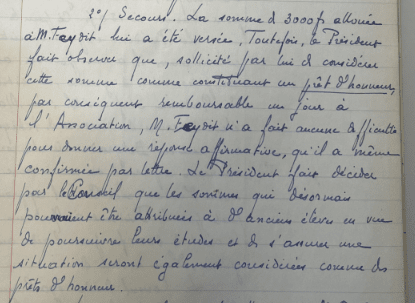 2°/ Secours. La somme de 3000f allouée
à M. Feydit lui a été versée. Toutefois, le Président
fait observer que, sollicité par lui de considérer
cette somme comme constituant un prêt d'honneur,
par conséquent remboursable un jour à
l'Association, M. Feydit n'a fait aucune difficulté
pour donner une réponse affirmative, qu'il a même
confirmée par lettre. Le Président fait décider
par le Conseil que les sommes qui désormais
pourraient être attribuées à d'anciens élèves en vue
de poursuivre leurs études et de s'assurer une
situation seront également considérées comme des
prêts d'honneur.